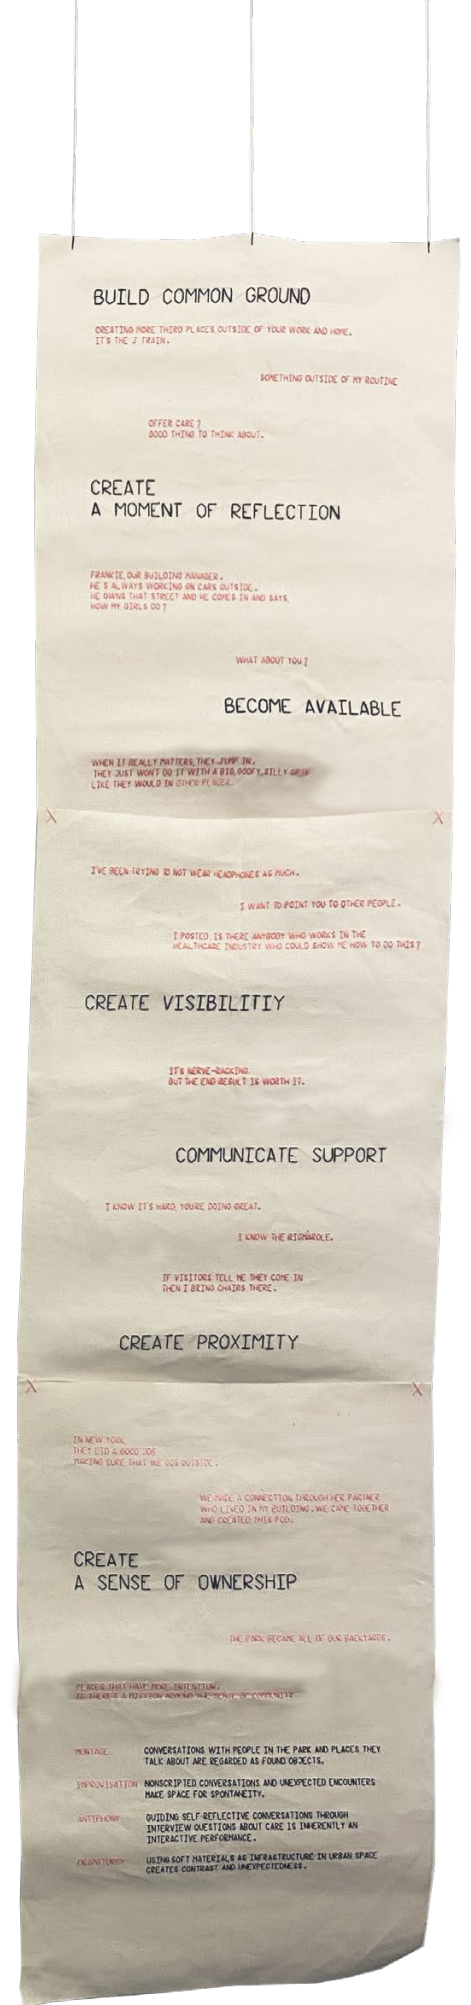 BUILD COMMON GROUND
CREATING MORE THIRD PLACES OUTSIDE OF YOUR WORK AND HOME.
IT'S THE J TRAIN.
SOMETHING OUTSIDE OF MY ROUTINE
OFFER CARE?
GOOD THING TO THINK ABOUT.
CREATE
A MOMENT OF REFLECTION
FRANKIE, OUR BUILDING MANAGER.
HE'S ALWAYS WORKING ON CARS OUTSIDE.
HE OWNS THAT STREET AND HE COMES IN AND SAYS,
HOW MY GIRLS DO?
WHAT ABOUT YOU?
BECOME AVAILABLE
WHEN IT REALLY MATTERS, THEY JUMP IN.
THEY JUST WON'T DO IT WITH A BIG, GOOFY, SILLY GRIN
LIKE THEY WOULD IN OTHER PLACES.
X X
I'VE BEEN TRYING TO NOT WEAR HEADPHONES AS MUCH.
I WANT TO POINT YOU TO OTHER PEOPLE.
I POSTED, IS THERE ANYBODY WHO WORKS IN THE
HEALTHCARE INDUSTRY WHO COULD SHOW ME HOW TO DO THIS?
CREATE VISIBILITIY
IT'S NERVE-RACKING.
BUT THE END RESULT IS WORTH IT.
COMMUNICATE SUPPORT
I KNOW IT'S HARD, YOU'RE DOING GREAT.
I KNOW THE RIGMAROLE.
IF VISITORS TELL ME THEY COME IN
THEN I BRING CHAIRS THERE.
CREATE PROXIMITY
X X
IN NEW YORK,
THEY DID A GOOD JOB
MAKING SURE THAT WE GOT OUTSIDE.
WE MADE A CONNECTION THROUGH HER PARTNER
WHO LIVED IN MY BUILDING. WE CAME TOGETHER
AND CREATED THIS POD.
CREATE
A SENSE OF OWNERSHIP
THE PARK BECAME ALL OF OUR BACKYARDS.
PLACES THAT HAVE MORE INTENTION.
IF THERE'S A MISSION AROUND THE SENSE OF COMMUNITY.
MONTAGE CONVERSATIONS WITH PEOPLE IN THE PARK AND PLACES THEY
TALK ABOUT ARE REGARDED AS FOUND OBJECTS.
IMPROVISATION NONSCRIPTED CONVERSATIONS AND UNEXPECTED ENCOUNTERS
MAKE SPACE FOR SPONTANEITY.
ANTIPHONY GUIDING SELF-REFLECTIVE CONVERSATIONS THROUGH
INTERVIEW QUESTIONS ABOUT CARE IS INHERENTLY AN
INTERACTIVE PERFORMANCE.
DRAMATURGY USING SOFT MATERIALS AS INFRASTRUCTURE IN URBAN SPACE
CREATES CONTRAST AND UNEXPECTEDNESS.